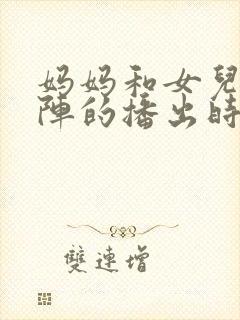 妈妈和女兒
陣的播出時
雙連增